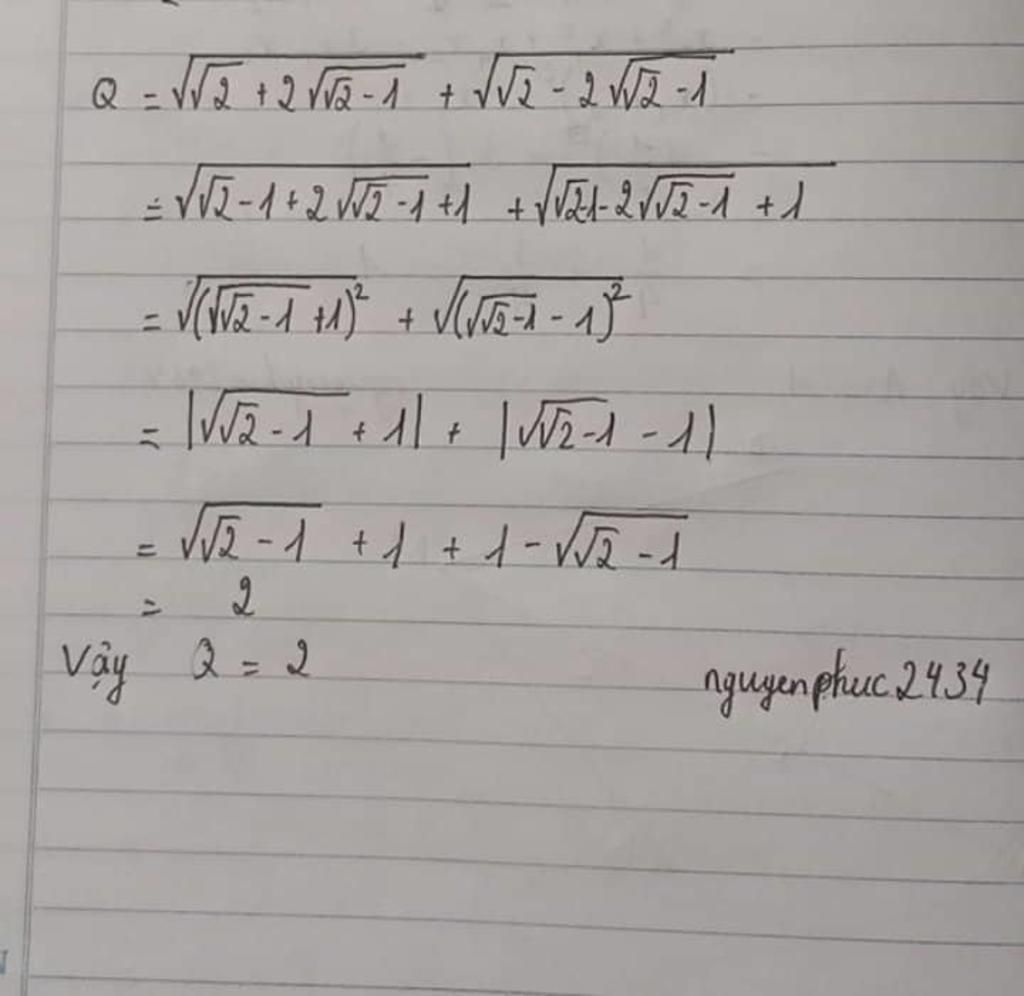 Q = √(√2 + 2√(√2 - 1)) + √(√2 - 2√(√2 - 1))
= √(√2 - 1 + 2√(√2 - 1) + 1) + √(√2 - 1 - 2√(√2 - 1) + 1)
= √((√(√2 - 1) + 1)²) + √((√(√2 - 1) - 1)²)
= |√(√2 - 1) + 1| + |√(√2 - 1) - 1|
= √(√2 - 1) + 1 + 1 - √(√2 - 1)
= 2
Vậy Q = 2 nguyenphuc2434